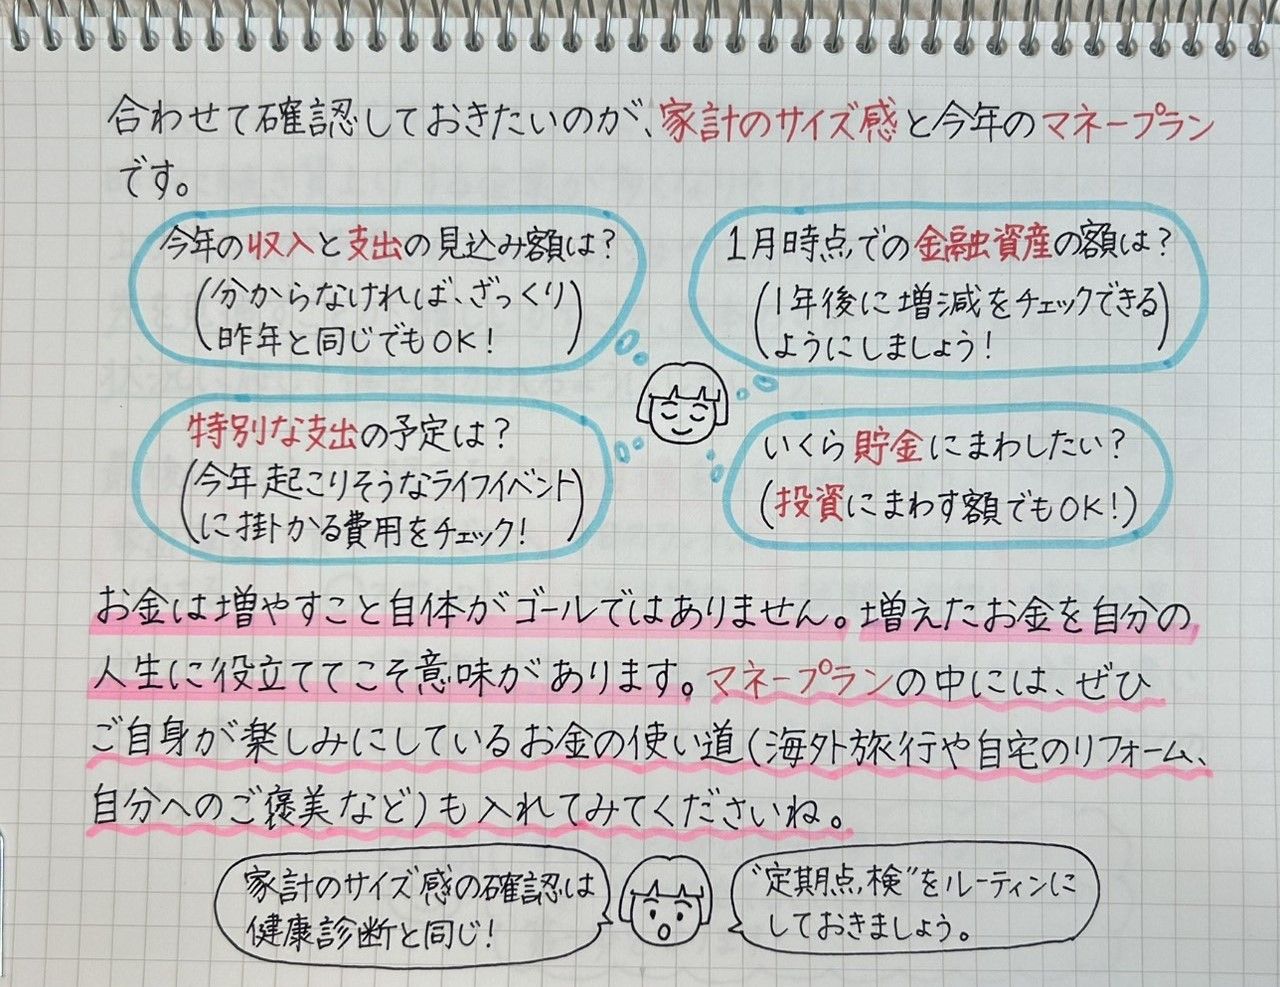 合わせて確認しておきたいのが、家計のサイズ感と今年のマネープラン
です。
今年の収入と支出の見込み額は？
(分からなければ、ざっくり
昨年と同じでもOK！)
1月時点での金融資産の額は？
(1年後に増減をチェックできる
ようにしましょう！)
特別な支出の予定は？
(今年起こりそうなライフイベント
に掛かる費用をチェック！)
いくら貯金にまわしたい？
(投資にまわす額でもOK！)
お金は増やすこと自体がゴールではありません。増えたお金を自分の
人生に役立ててこそ意味があります。マネープランの中には、ぜひ
ご自身が楽しみにしているお金の使い道(海外旅行や自宅のリフォーム、
自分へのご褒美など)も入れてみてくださいね。
家計のサイズ感の確認は
健康診断と同じ！
“定期点検”をルーティンに
しておきましょう。